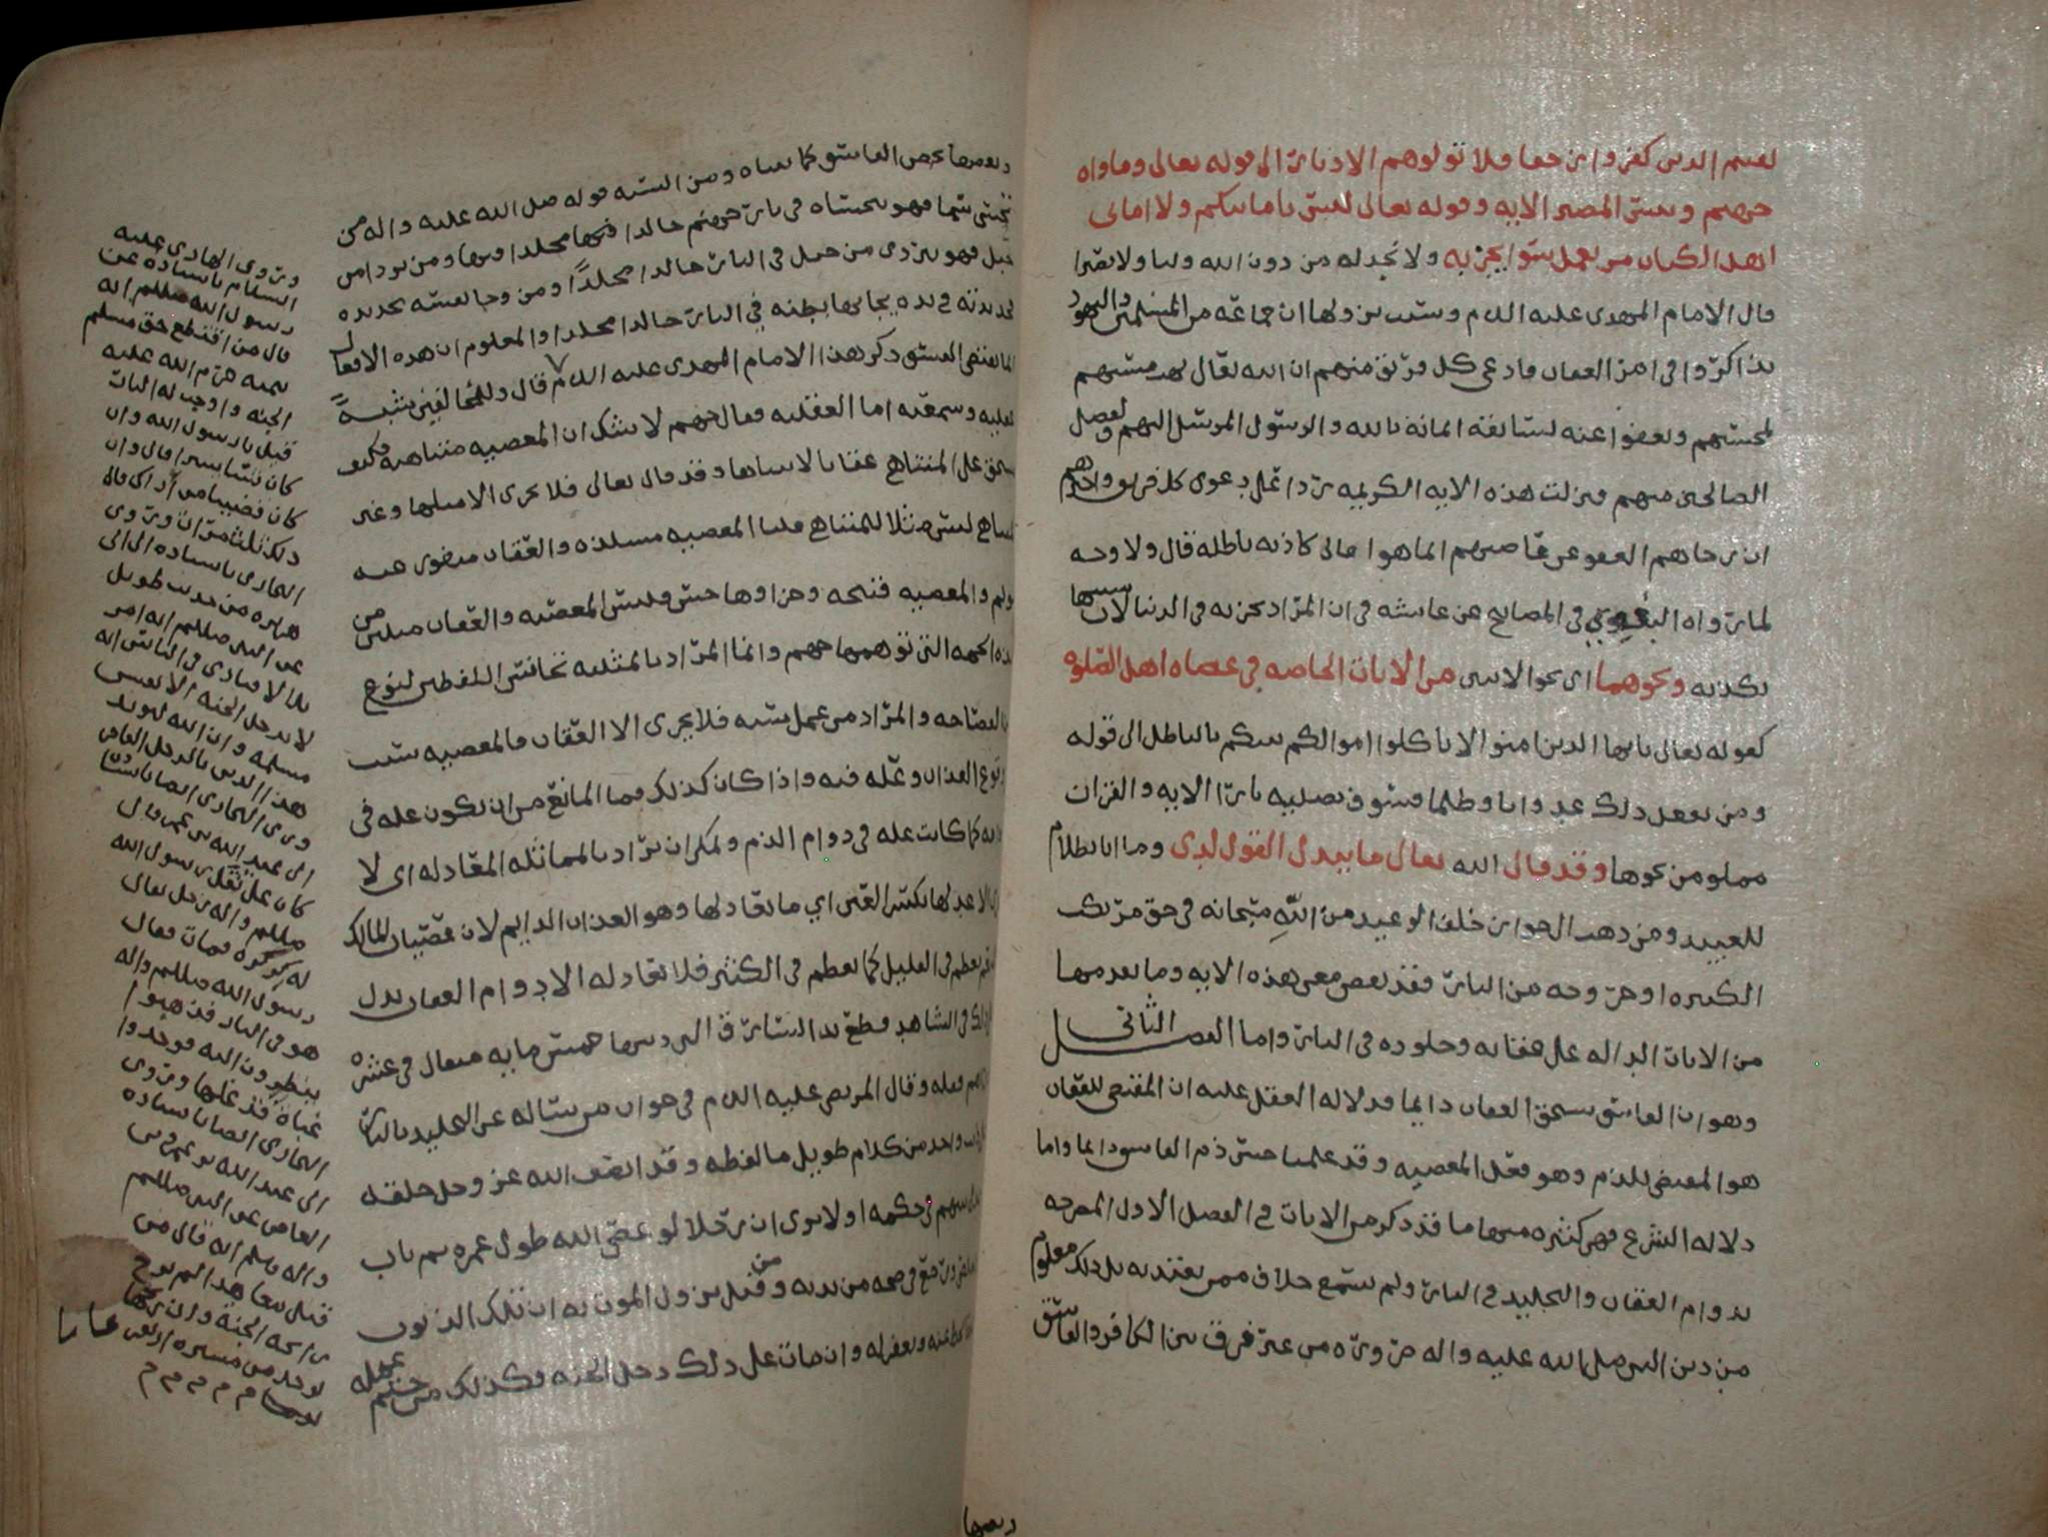 لقيتم الذين كفروا زحفا فلا تولوهم الادبار الى قوله تعالى وماواه
جهنم وبئس المصير الايه وقوله تعالى ليس بامانيكم ولا اماني
اهل الكتاب من يعمل سوا يجز به ولا يجد له من دون الله وليا ولا نصيرا
قال الامام المهدي عليه السلم وسبب نزولها ان جماعة من المسلمين واليهود
تذاكروا في امر العقاب فادعى كل فريق منهم ان الله تعالى يهب مسيئهم
لمحسنهم ويعفوا عنه لسابقة امانه بالله والرسول المرسل اليهم ولفضل
الصالحين منهم فنزلت هذه الايه الكريمه ردا على دعوى كل فريق واحدهم
ان رجاهم العفو عن عاصيهم انما هو اماني كاذبه باطله قال ولا وجه
لما رواه البغوي في المصابيح عن عايشه في ان المراد يجز به في الدنيا لان سببها
يكذبه ونحوهما اي نحو الايتين من الايات الخاصه في عصاه اهل الصلوه
كقوله تعالى يايها الذين امنوا لا تاكلوا اموالكم بينكم بالباطل الى قوله
ومن يفعل ذلك عدوانا وظلما فسوف نصليه نارا الايه والقران
مملو من نحوها وقد قال الله تعالى ما يبدل القول لدي وما انا بظلام
للعبيد ومن ذهب الى جواز خلف الوعيد من الله سبحانه في حق مرتكب
الكبيره او خروجه من النار فقد نقض معنى هذه الايه وما تقدمها
من الايات الداله على عقابه وخلوده في النار واما الفصل الثاني
وهو ان الفاسق يستحق العقاب دايما فدلاله العقل عليه ان المقتضي للعقاب
هو المقتضي للذم وهو فعل المعصيه وقد علمنا حسن ذم الفاسق دايما واما
دلاله الشرع فهي كثيره منها ما قد ذكر من الايات في الفصل الاول المصرحه
بدوام العقاب والتخليد في النار ولم يسمع خلاف ممن يعتد به بل ذلك معلوم
من دين النبي صلى الله عليه واله ضروره من غير فرق بين الكافر والفاسق
وبعضها
وبعضها يخص الفاسق كما بيناه ومن السنه قوله صلى الله عليه واله من
تحسى سما فهو يتحساه في نار جهنم خالدا فيها مخلدا فيها ومن تردا من
جبل فهو يتردى من جبل في النار خالدا مخلدًا ومن وجا نفسه بحديده
فحديدته في يده يجا بها بطنه في النار خالدا مخلدا والمعلوم ان هذه الافعال
انما تقتضي الفسق ذكر هذا الامام المهدي عليه السلم قال وللمخالفين شبه
عقليه وسمعيه اما العقليه فقال جهم لا شك ان المعصيه متناهيه فكيف
يستحق على المتناهي عقابا لا يتناها وقد قال تعالى فلا يجزى الا مثلها وغير
المتناهي ليس مثلا للمتناهي قلنا المعصيه مستلذه والعقاب
والمعصيه قبيحه وجزاوها حسن وليس المعصيه والعقاب مثلين من
هذه الجهه التي توهمها جهم وانما المراد بالمثليه تجانس اللفظين لنوع
من الفصاحه والمراد من عمل سيئه فلا يجزى الا العقاب فالمعصيه سبب
وقوع العذاب وعله فيه واذا كان كذلك فما المانع من ان تكون عله في
دوامه كما كانت عله في دوام الذم ويمكن ان يراد بالمماثله المعادله اي لا
يجزى الا عدلها بكسر العين اي ما يعادلها وهو العذاب الدايم لان عصيان المالك
المنعم يعظم في القليل كما يعظم في الكثير فلا يعادله الا دوام العقاب يدل
على ذلك في الشاهد قطع يد السارق التي ديتها خمس مايه مثقال في عشره
دراهم فعله وقال المرتضى عليه السلم في جواب من ساله عن التخليد بالنار
بذنب واحد من كلام طويل ما لفظه وقد انصف الله عز وجل خلقه
بينهم في حكمه اولا ترى ان رجلا لو عصى الله طول عمره ثم تاب
واخلص ورجع في صحه من بدنه ومن قبل نزول الموت به ان تلك الذنوب
تحط عنه ويغفر له وان مات على ذلك دخل الجنه وكذلك من ختم عمله
وروى الهادي عليه
السلام باسناده عن
رسول الله صللم انه
قال من اقتطع حق مسلم
بيمينه حرم الله عليه
الجنه واوجب له النار
قيل يا رسول الله وان
كان شيا يسيرا قال وان
كان قضيبا من اراك قالها
ذلك ثلث مرات وروى
البخاري باسناده الى ابي
هريره من حديث طويل
عن النبي صللم انه امر
بلالا فنادى في الناس انه
لا يدخل الجنه الا نفس
مسلمه وان الله ليويد
هذا الدين بالرجل الفاجر
وروى البخاري ايضا باسناده
الى عبد الله بن عمر قال
كان على ثقل رسول الله
صللم واله رجل يقال
له كركره فمات فقال
رسول الله صللم واله
هو في النار فذهبوا
ينظرون اليه فوجدوا
عباة قد غلها وروى
البخاري ايضا باسناده
الى عبد الله بن عمرو بن
العاص عن النبي صللم
واله وسلم انه قال من
قتل معاهدا لم يرح
رائحه الجنة وان ريحها
يوجد من مسيره اربعين عاما